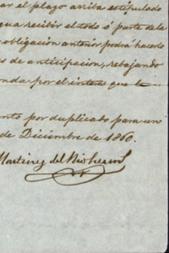 ar el plazo arriba estipulado
ua recibir el todo ó parte de la
obligacion anterior podra hacerlo
es de anticipacion, rebajando
onda por el interes que le
nto por duplicado para un
de Diciembre de 1860.
Martinez del Rio herms